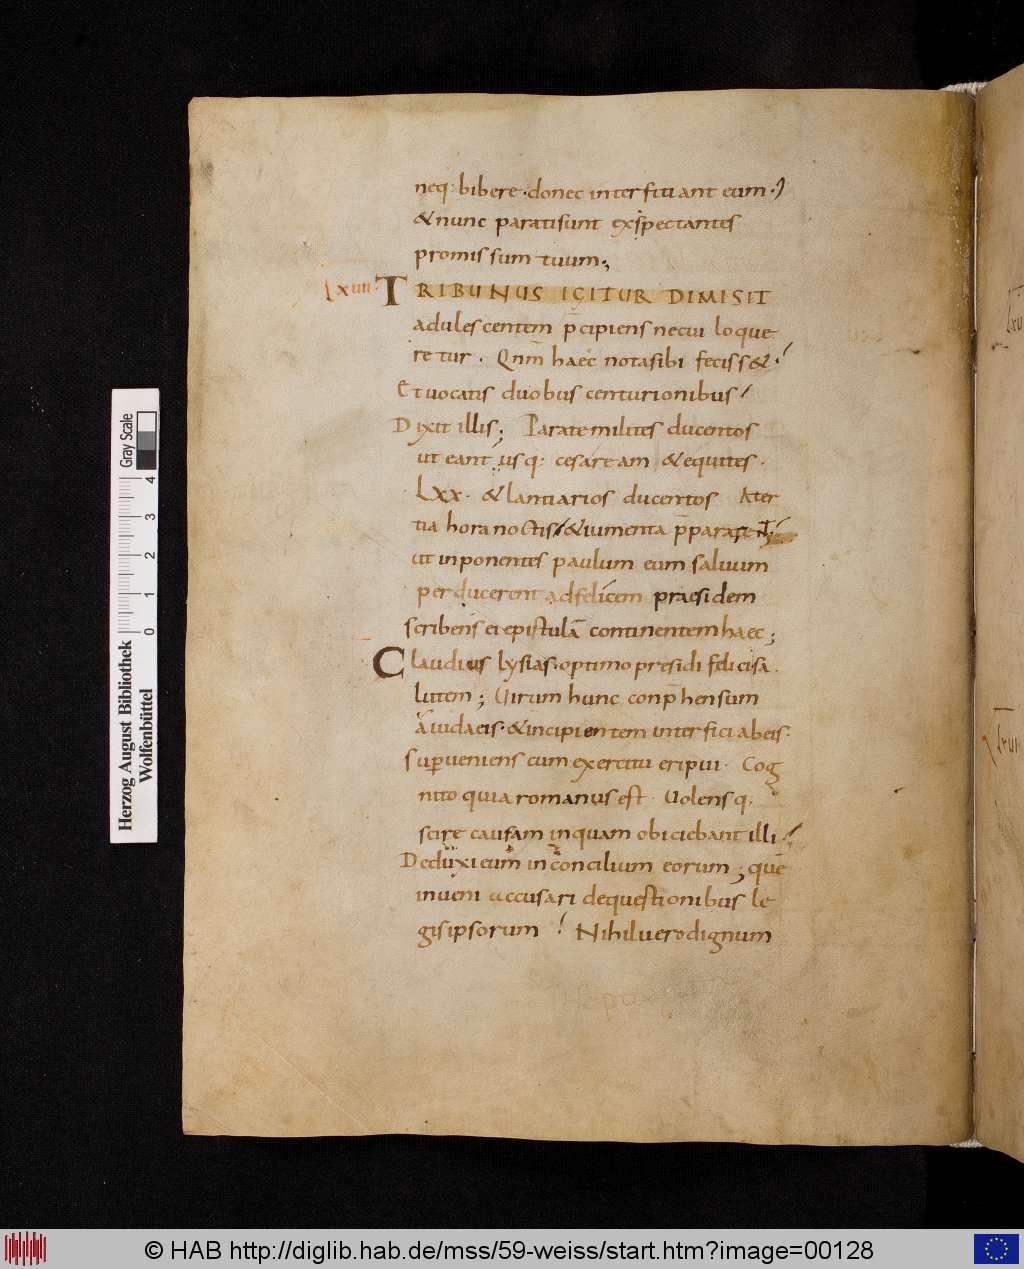 neq: bibere · donec interficiant eum ·
& nunc parati sunt exspectantes
promissum tuum;
Lxiiii TRIBUNUS IGITUR DIMISIT
adulescentem p̄cipiens ne cui loque
retur · Qnm̄ haec nota sibi feciss& ·
Et uocatis duobus centurionibus
Dixit illis; Parate milites ducentos
ut eant usq: cesaream & equites ·
Lxx · & lantiarios ducentos A ter
tia hora noctis & iumenta p̄parate
ut inponentes paulum eum saluum
perducerent ad felicem praesidem
scribens ei epistulā continentem haec;
Claudius lysias · optimo presidi felici sa
lutem; Uirum hunc conp̄hensum
a iudaeis · & incipientem interfici ab eis ·
superueniens cum exercitu eripui · Cog
nito quia romanus est · Uolensq;
scire causam in quam obiciebant illi
Deduxi eum in concilium eorum; quē
inueni accusari de questionibus le
gis ipsorum Nihil uero dignum
Herzog August Bibliothek
Wolfenbüttel
Gray Scale
0 1 2 3 4
© HAB http://diglib.hab.de/mss/59-weiss/start.htm?image=00128